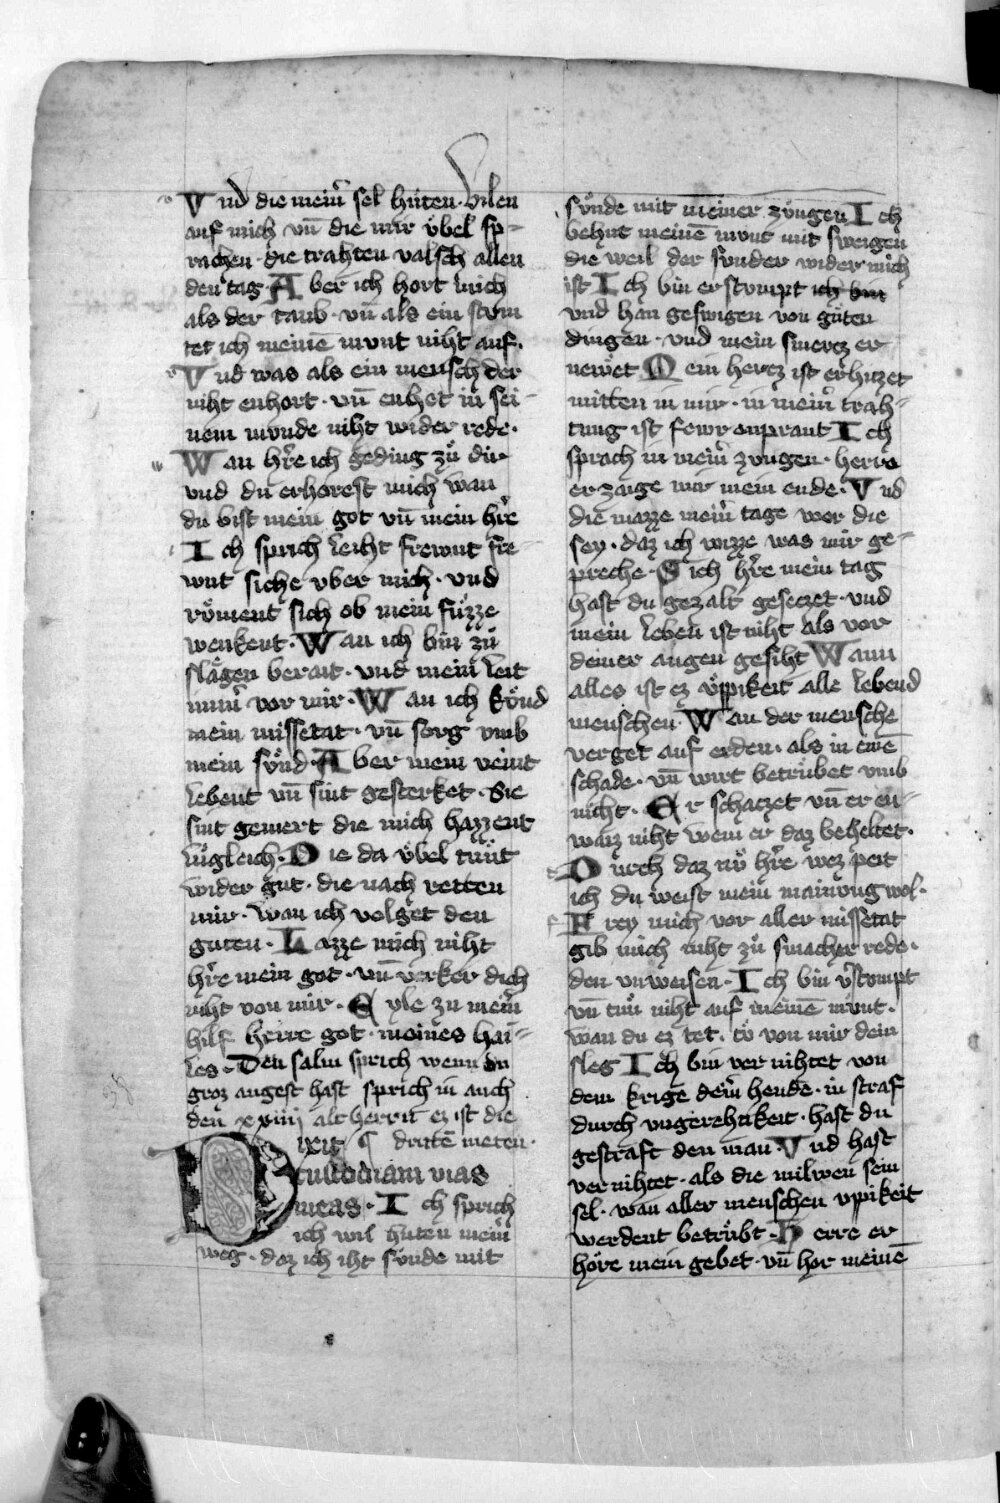 Vnd die meinͤ sel hüten · vilen
auf mich vn̄ die mir vͤbel sp-
rachen · die trahten valsch allen
den tag · Aber ich hort mich
als der taub · vn̄ als ein stum
tet ich meinē munt niht auf ·
Vnd was als ein mensch der
niht enhort · vn̄ enhet in sei-
nem munde niht wider rede ·
Wan hr̄e ich geding zuͤ dir
vnd du erhorest mich wan
du bist mein got vn̄ mein hr̄e
Ich sprich leiht frewnt fre-
wnt siche vber mich · vnd
roͤment sich ob mein fuͤzze
wenkent · Wan ich bin zuͤ
slaͤgen berait · vnd mein leit
vor mir · Wan ich kuͤnd
mein missetat · vn̄ sorg vmb
mein suͤnd · Aber mein veint
lebent vn̄ sint gesterket · Sie
sint gemert die mich hazzent
vngleich · Die da vͤbel tuͤnt
wider gut · die nach retten
mir · wan ich volget den
guten · Lazze mich niht
hr̄e mein got · vn̄ verker dich
niht von mir · Eyle zu mein̄
hilf herre got · meines hai-
les · Den salm sprich wenn du
groz angest hast sprich in auch
den xxxiiij alt herrn ez ist die
Dixit ¶ druten meten ·
custodiam vias
meas · Ich sprich
ich wil huten mein̄
weg · daz ich iht suͤnde mit
suͤnde mit meiner zungen Ich
behut meinē munt mit sweigen
die weil der sunder wider mich
ist Ich bin erstumpt ich bin
vnd han geswigen von guten
dingen · vnd mein smercz er
newͤet Mein hercz ist erhitzet
mitten in mir · in mein̄ trah-
tung ist fewr enprant Ich
sprach in mein̄ zungen · herre
erzaige mir mein ende · Vnd
die mazze mein̄ tage wer die
sey · daz ich wizze was mir ge-
preche · Sich hr̄e mein tag
hast du gezalt geseczet · vnd
mein leben ist niht als vor
deiner augen gesiht Wann
alles ist ez vͤppikeit alle lebend
menschen · Wan der mensche
verget auf erden · als in einē
schade · vn̄ wirt betruͤbet vmb
nicht · Er schaczet vn̄ er en-
waiz niht wem er daz beheltet ·
Durch daz nu hr̄e wez peit
ich du weist mein mainung wol ·
Frey mich vor aller missetat
gib mich niht zuͤ smacher rede ·
den vnweisen · Ich bin v̄stumpt
vn̄ tuͤn niht auf meinē munt ·
wan du ez tet · tuͤ von mir dein
sleg Ich bin vernihtet von
dem krige dein̄ hende · in straf
durch vngerehtikeit · hast du
gestraft den man · Vnd hast
vernihtet · als die milwen sein
sel · wan aller menschen vppikeit
werdent betruͤbt · Herre er
hoͤre mein gebet · vn̄ hor meinē